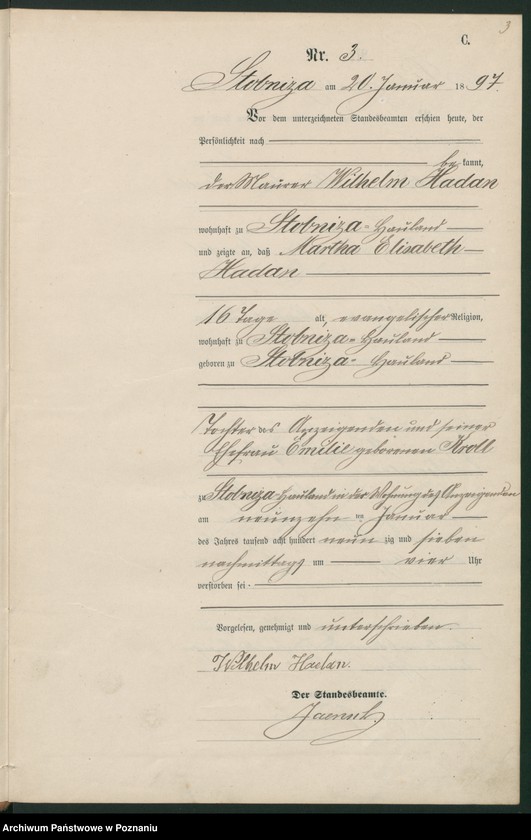 3
C.
Nr. 3.
Stobniza am 20. Januar 1897.
Vor dem unterzeichneten Standesbeamten erschien heute, der
Persönlichkeit nach
be kannt,
der Maurer Wilhelm Hadan
wohnhaft zu Stobniza-Hauland
und zeigte an, daß Martha Elisabeth
Hadan
16 Tage alt, evangelischer Religion,
wohnhaft zu Stobniza-Hauland
geboren zu Stobniza-Hauland
Tochter des Anzeigenden und seiner
Ehefrau Emilie geborenen Kroll
zu Stobniza-Hauland in der Wohnung des Anzeigenden
am neunzehn ten Januar
des Jahres tausend acht hundert neun zig und sieben
nachmittags um vier Uhr
verstorben sei.
Vorgelesen, genehmigt und unterschrieben.
Wilhelm Hadan.
Der Standesbeamte.
Archiwum Państwowe w Poznaniu